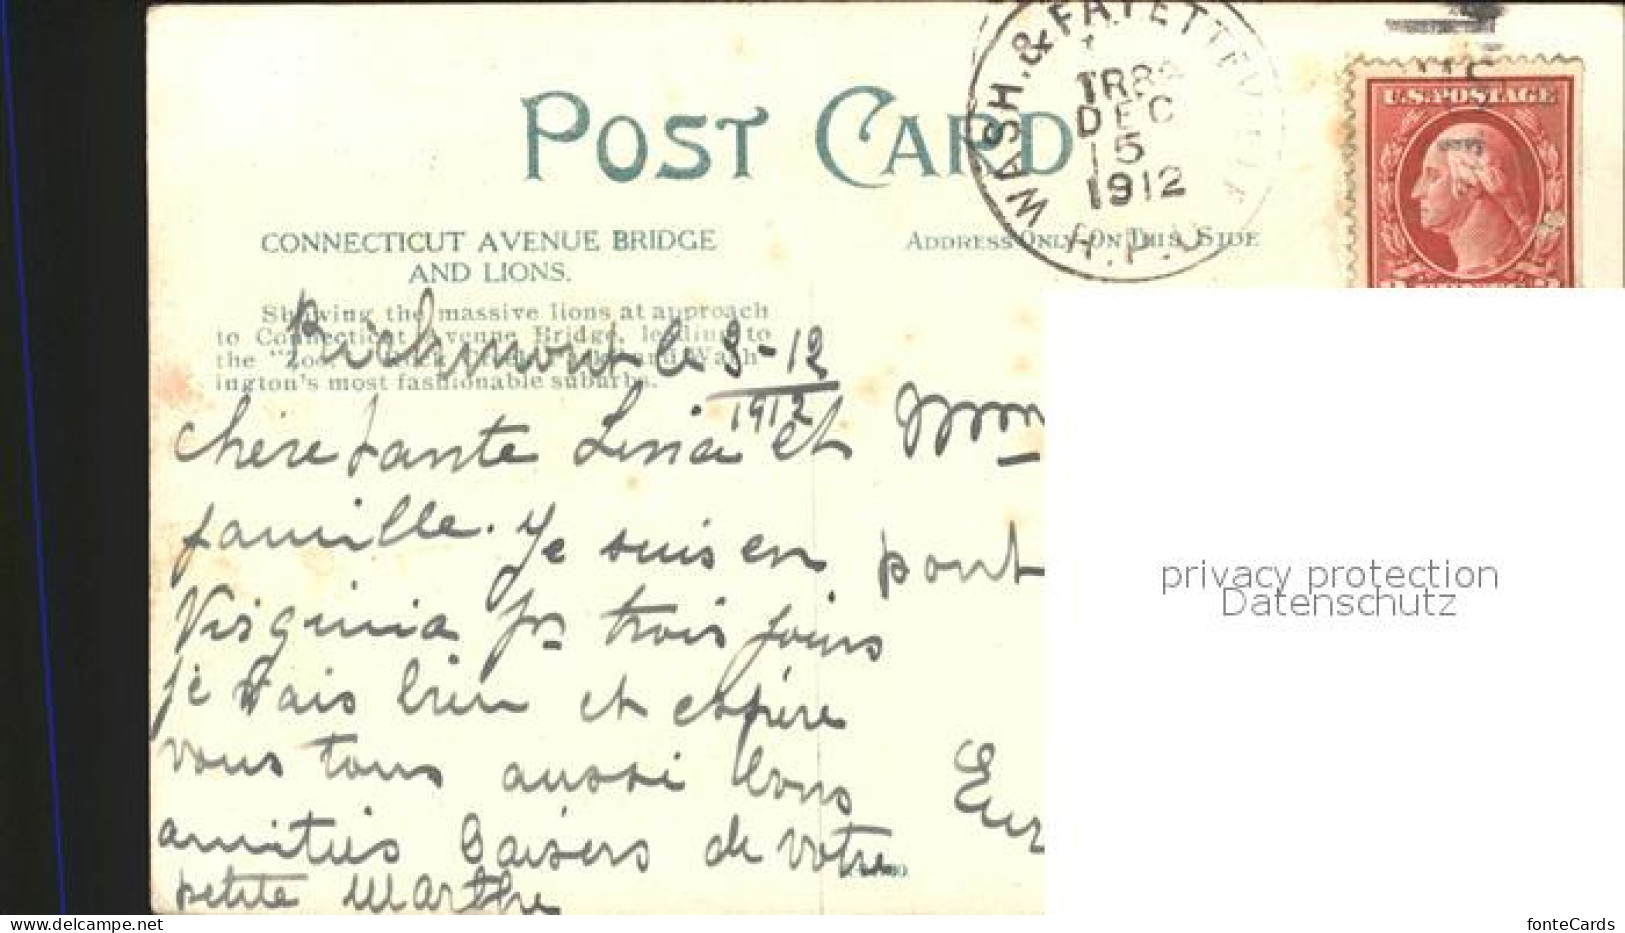 POST CARD
WASH. & FAYETTEVILLE
TR 82
DEC
5
1912
R.P.O.
U.S. POSTAGE
CONNECTICUT AVENUE BRIDGE
AND LIONS.
ADDRESS ONLY ON THIS SIDE
Showing the massive lions at approach
to Connecticut Avenue Bridge, leading to
the "Zoo," Rock Creek Park and Wash-
ington's most fashionable suburbs.
Richmont le 3-12
1912
chère tante Lina et
famille. Je suis en
Virginia pr trois jours
je vais bien et espère
vous tous aussi bons
amitiés baisers de votre
petite Marthe
Mm
pont
Eur
privacy protection
Datenschutz
fonteCards